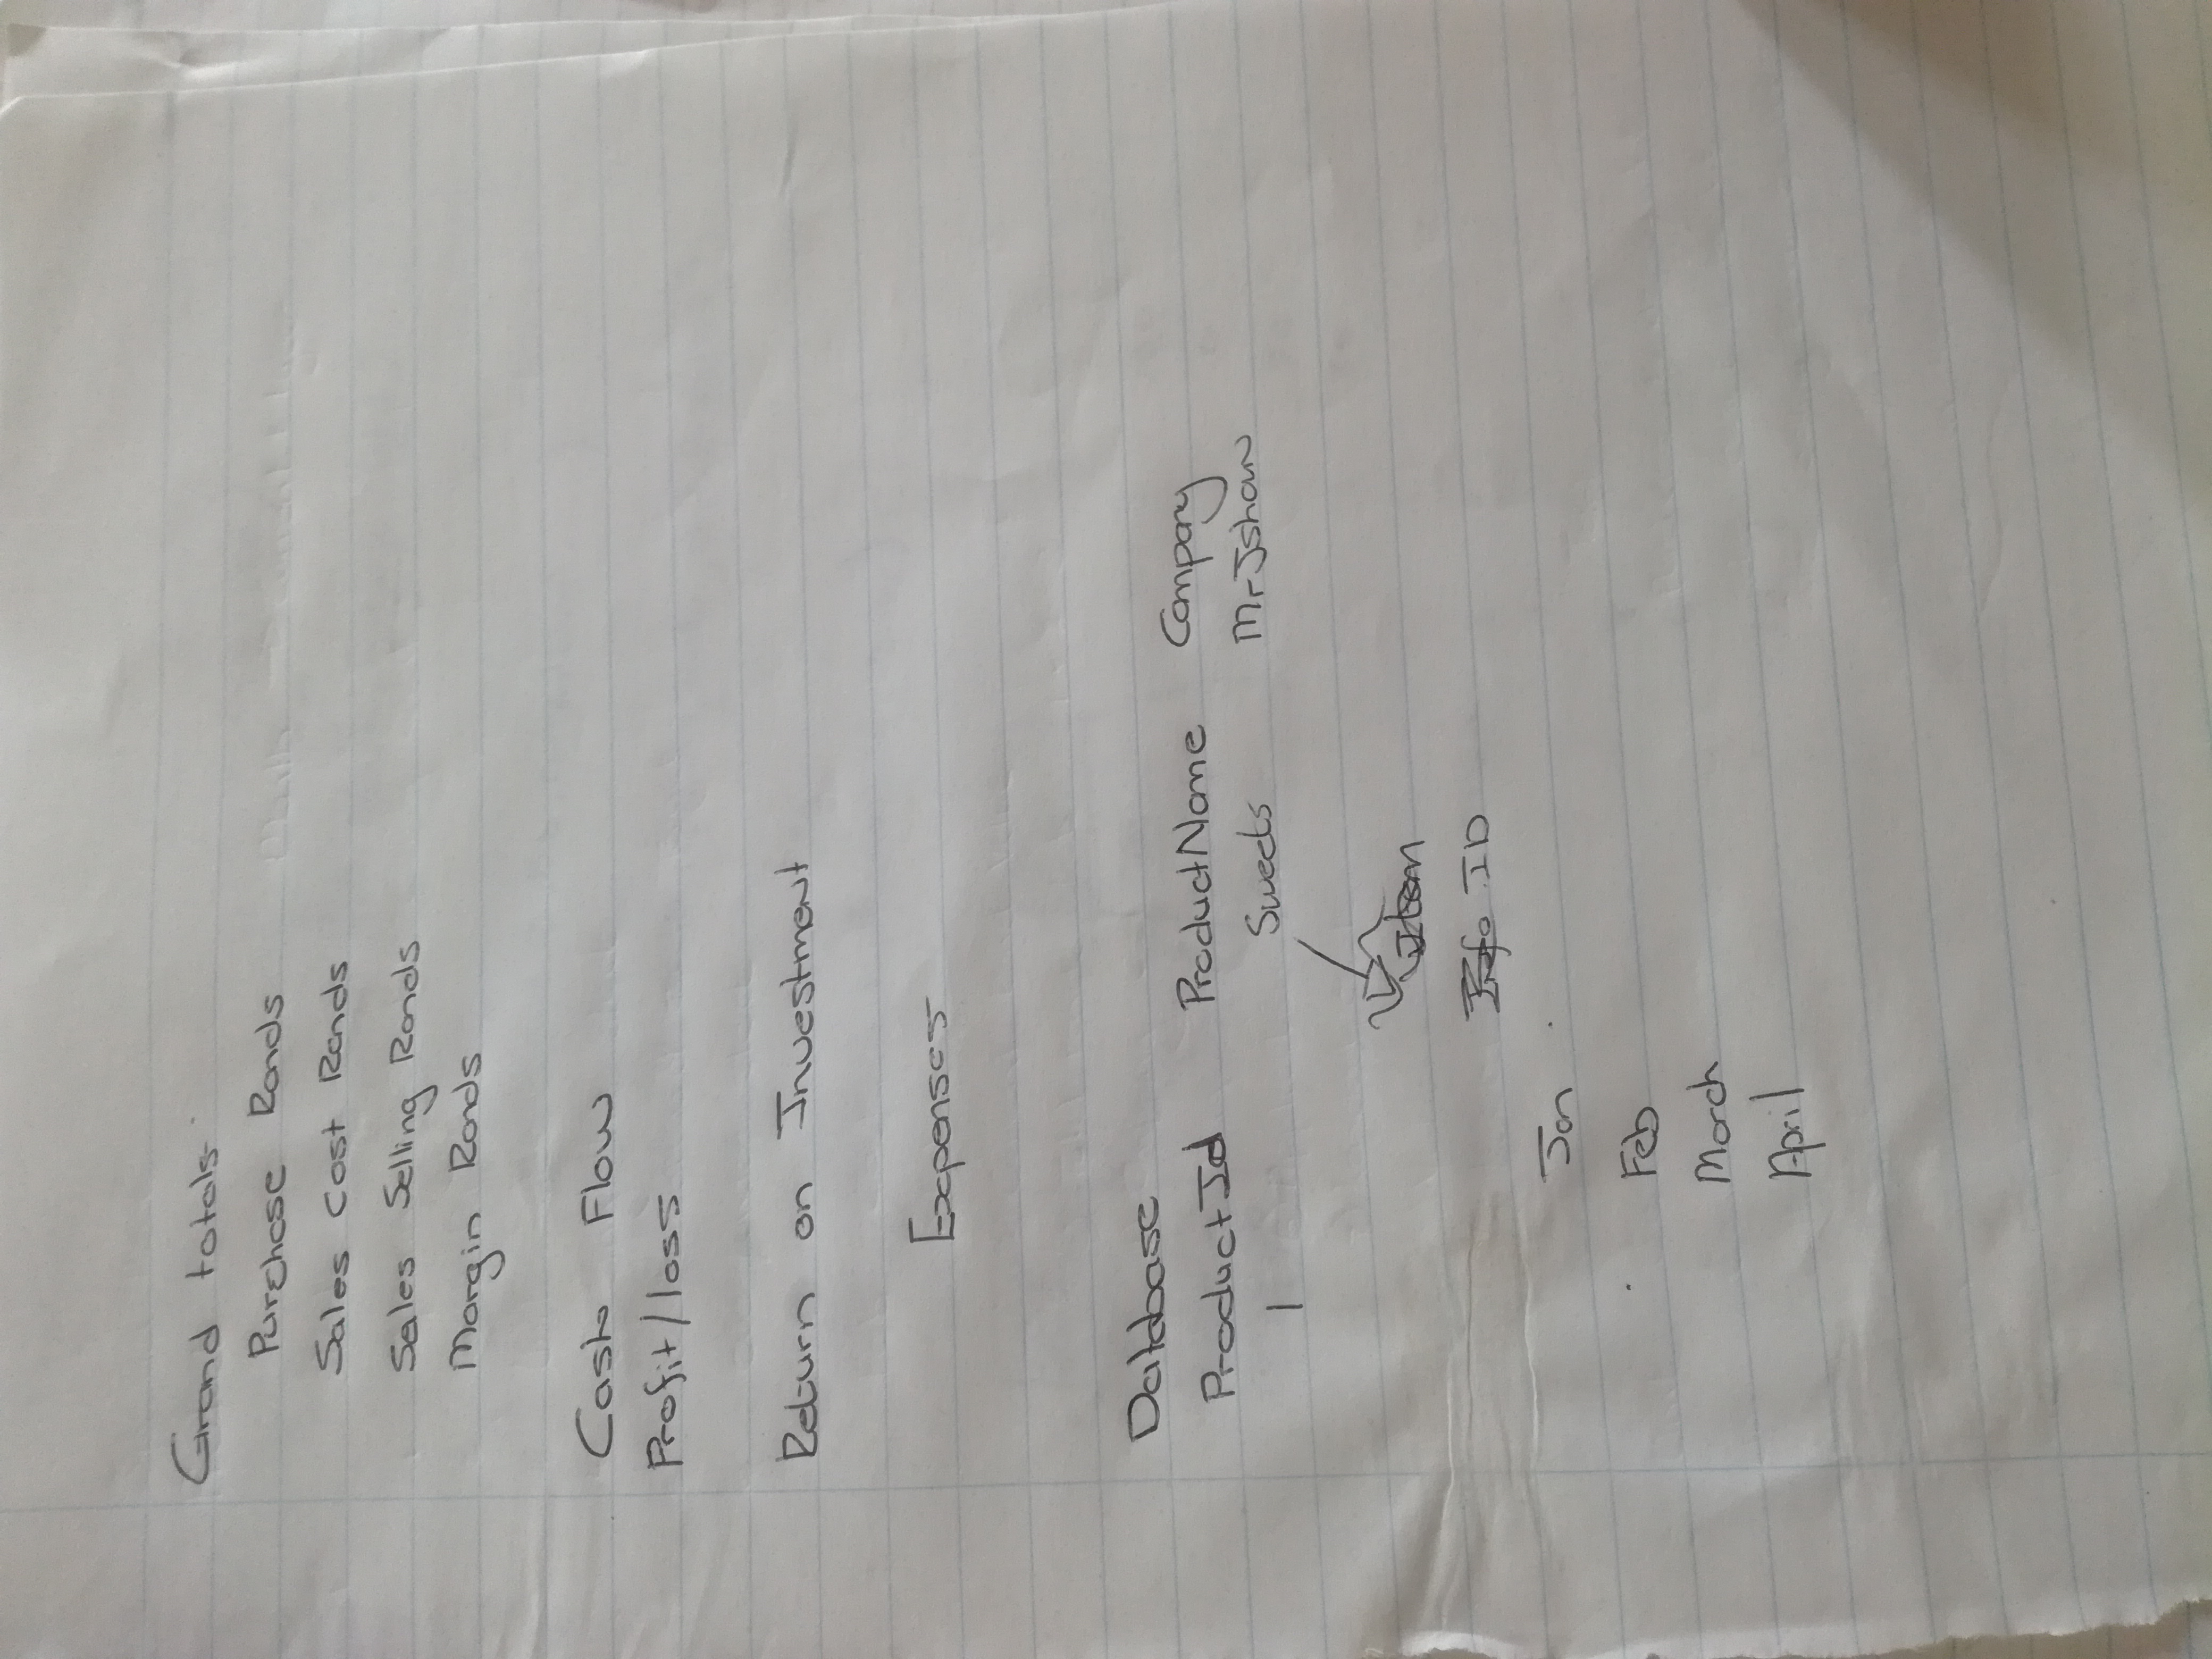 Grand totals.
Purchase Rands
Sales Cost Rands
Sales Selling Rands
Margin Rands
Cash Flow
Profit/loss
Return on Investment
Expenses
Database
ProductId ProductName Company
1 Sweets Mr Ishan
ID
Jan
Feb
March
April